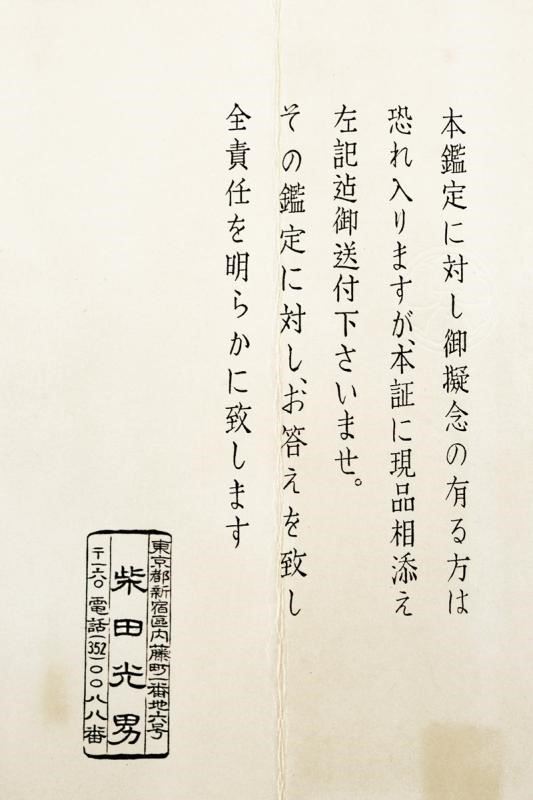 本鑑定に対し御擬念の有る方は
恐れ入りますが、本証に現品相添え
左記迠御送付下さいませ。
その鑑定に対し、お答えを致し
全責任を明らかに致します
東京都新宿区内藤町一番地六号
柴田光男
〒一六〇 電話(352)〇〇八八番